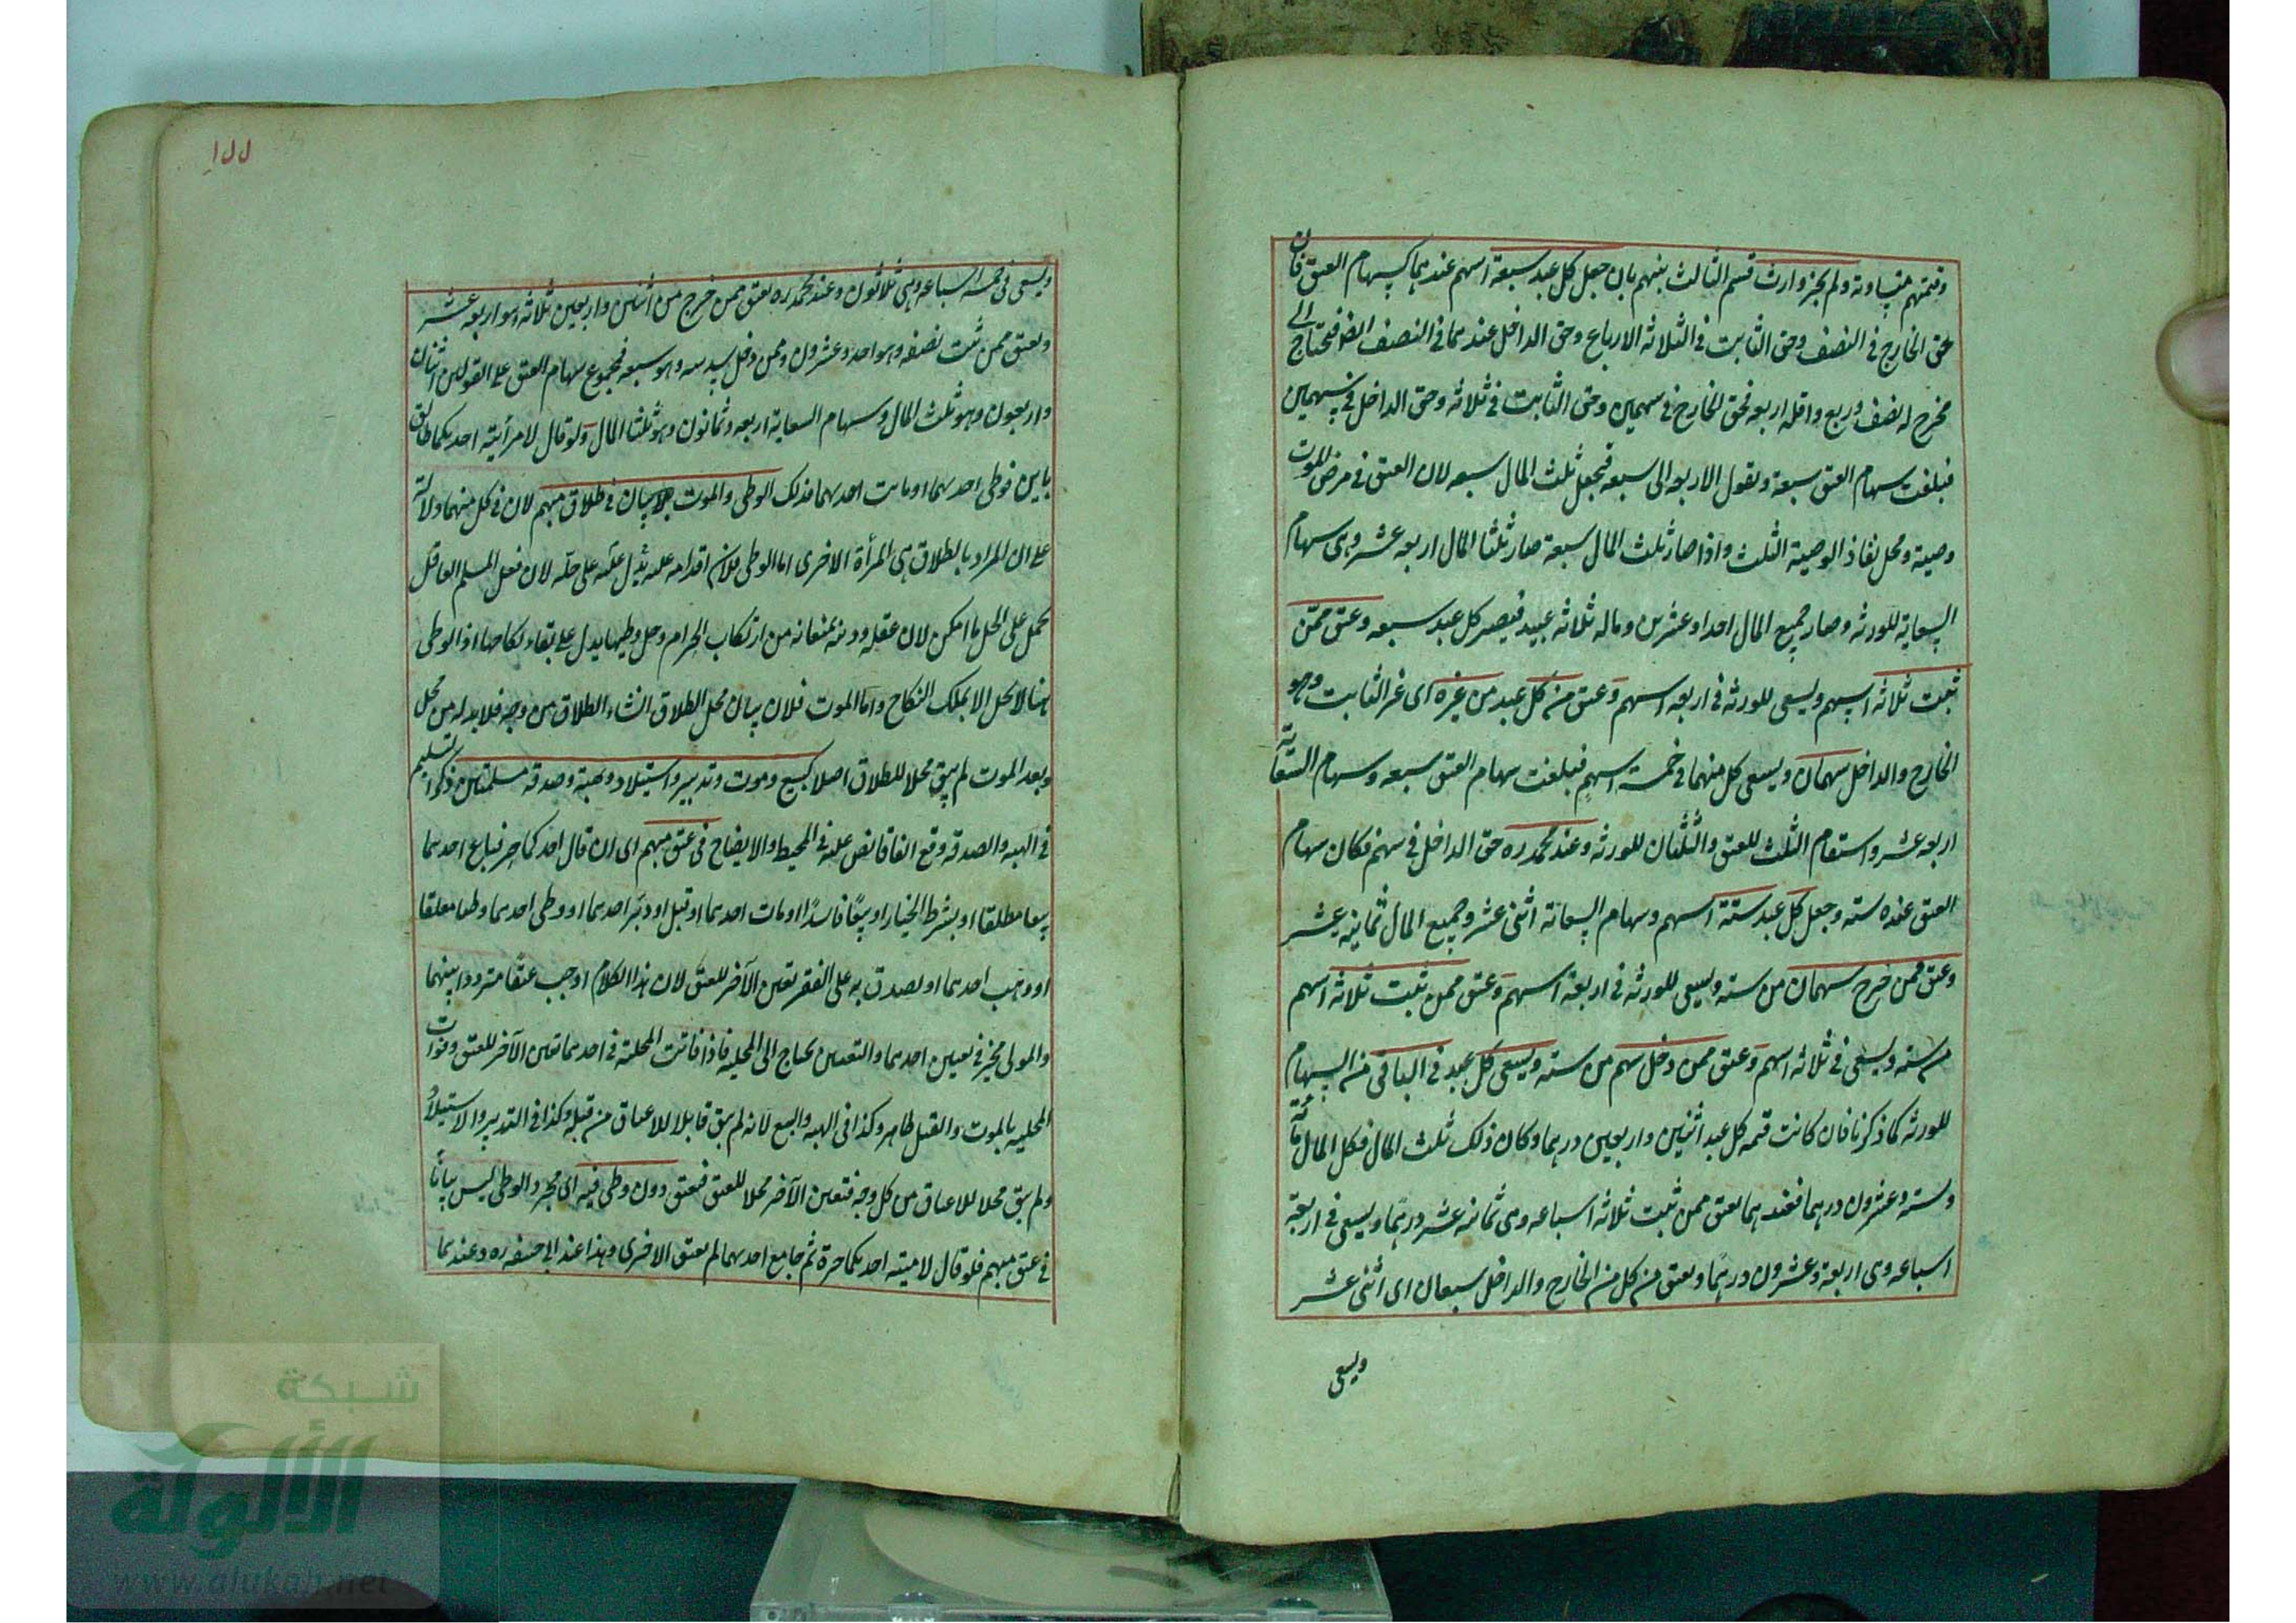 وقيمتهم متساوية ولم يجز وارث قسم الثالث بينهم بان جعل كل عبد سبعة اسهم عندهما كسهام العتق فان
حق الخارج فى النصف وحق الثابت فى الثلاثة الارباع وحق الداخل عندهما فى النصف ايضا فنحتاج الى
مخرج له نصف وربع واقله اربعه فحق الخارج فى سهمين وحق الثابت فى ثلاثه وحق الداخل فى سهمين
فبلغت سهام العتق سبعة وتعول الاربعه الى سبعه فيجعل ثلث المال سبعه لان العتق فى مرض الموت
وصية ومحل نفاذ الوصية الثلث واذا صار ثلث المال سبعة صار ثلثا المال اربعه عشر وهى سهام
السعاية للورثه وصار جميع المال احدا وعشرين وماله ثلاثه عبيد فيصير كل عبد سبعه وعتق ممّن
ثبت ثلاثه اسهم ويسعى للورثه فى اربعه اسهم وعتق من كل عبد من غيره اى غير الثابت وهو
الخارج والداخل سهمان ويسعى كل منهما فى خمسة اسهم فبلغت سهام العتق سبعه وسهام السعاية
اربعه عشر واستقام الثلث للعتق والثلثان للورثه وعند محمد ره حق الداخل فى سهم فكان سهام
العتق عنده سته وجعل كل عبد ستة اسهم وسهام السعاية اثنى عشر وجميع المال ثمانيه عشر
وعتق ممن خرج سهمان من سته ويسعى للورثه فى اربعة اسهم وعتق ممن ثبت ثلاثه اسهم
من سته ويسعى فى ثلاثه اسهم وعتق ممن دخل سهم من سته ويسعى كل عبد فى الباقى من السهام
للورثه كما ذكرنا فان كانت قيمه كل عبد اثنين واربعين درهما وكان ذلك ثلث المال فكل المال مائة
وسته وعشرون درهما فعندهما يعتق ممن ثبت ثلاثه اسباعه وهى ثمانيه عشر درهما ويسعى فى اربعة
اسباعه وهى اربعة وعشرون درهما ويعتق من كل من الخارج والداخل سبعان اى اثنى عشر
ويسعى
١٥٥
ويسعى فى خمسه اسباعه وهى ثلاثون وعند محمد ره يعتق ممن خرج من اثنين واربعين ثلاثه وهو اربعه عشر
ويعتق ممن ثبت نصفه وهو احد وعشرون وممن دخل سدسه وهو سبعه فمجموع سهام العتق على القولين اثنان
واربعون وهو ثلث المال وسهام السعاية اربعه وثمانون وهو ثلثا المال ولو قال لامرأتيه احديكما طالق
باين فوطى احديهما او ماتت احديهما فذلك الوطى والموت بيان فى طلاق مبهم لان فى كل منهما دلالة
على ان المراد بالطلاق هى المرأة الاخرى اما الوطى فلان اقدامه عليه يدل على حله لان فعل المسلم العاقل
يحمل على الحل ما امكن لان عقله ودينه يمنعانه من ارتكاب الحرام وحل وطيها يدل على بقاء نكاحها اذ الوطى
هنا لا يحل الا بملك النكاح واما الموت فلان بيان محل الطلاق انشاء الطلاق من وجه فلا بد له من محل
وبعد الموت لم يبق محلا للطلاق اصلا كبيع وموت وتدبير واستيلاد وهبة وصدقة مسلمتين ذكر التسليم
فى الهبه والصدقه وقع اتفاقا نص عليه فى المحيط والايضاح فى عتق مبهم اى ان قال احدكما حر فباع احدهما
بيعا مطلقا او بشرط الخيار او بيعًا فاسدًا او مات احدهما او قتل او دبّر احدهما او وطى احدهما وطئا معلقا
او وهب احدهما او تصدق به على الفقير تعين الآخر للعتق لان هذا الكلام اوجب عتقًا مترددا بينهما
والمولى مخير فى تعيين احدهما والتعيين يحتاج الى المحلية فاذا فاتت المحلية فى احدهما تعين الآخر للعتق وفوات
المحليه بالموت والقتل ظاهر وكذا فى الهبه والبيع لانه لم يبق قابلا للاعتاق من قبله وكذا فى التدبير والاستيلاد
ولم يبق محلا للاعتاق من كل وجه فتعين الآخر محلا للعتق فيعتق دون وطى فيه اى مجرد الوطى ليس بيانًا
فى عتق مبهم فلو قال لامتيه احديكما حرة ثم جامع احديهما لم يعتق الاخرى وهذا عند ابى حنيفه ره وعندهما
شبكة
الألوكة
www.alukah.net